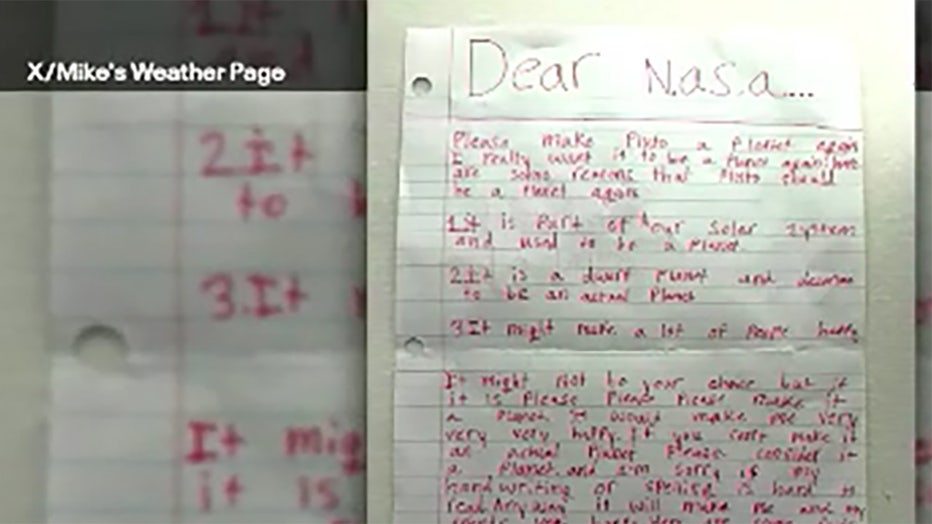 X/Mike's Weather Page
Dear N.a.s.a....
Please make Pluto a Planet again
I really want it to be a Planet again! here
are some reasons that Pluto should
be a Planet again
1 It is Part of our solar system
and used to be a Planet.
2 It is a dwarf Planet and
to be an actual Planet
3 It might make a lot of People happy
It might not be your choice but if
it is Please Please Please make it
a Planet It would make me very
very very happy. If you can't make it
an actual Planet Please consider it
a Planet and I'm sorry if my
handwriting or spelling is hard to
read Anyway it will make me and my
2 It
to
3.It
It mig
it is